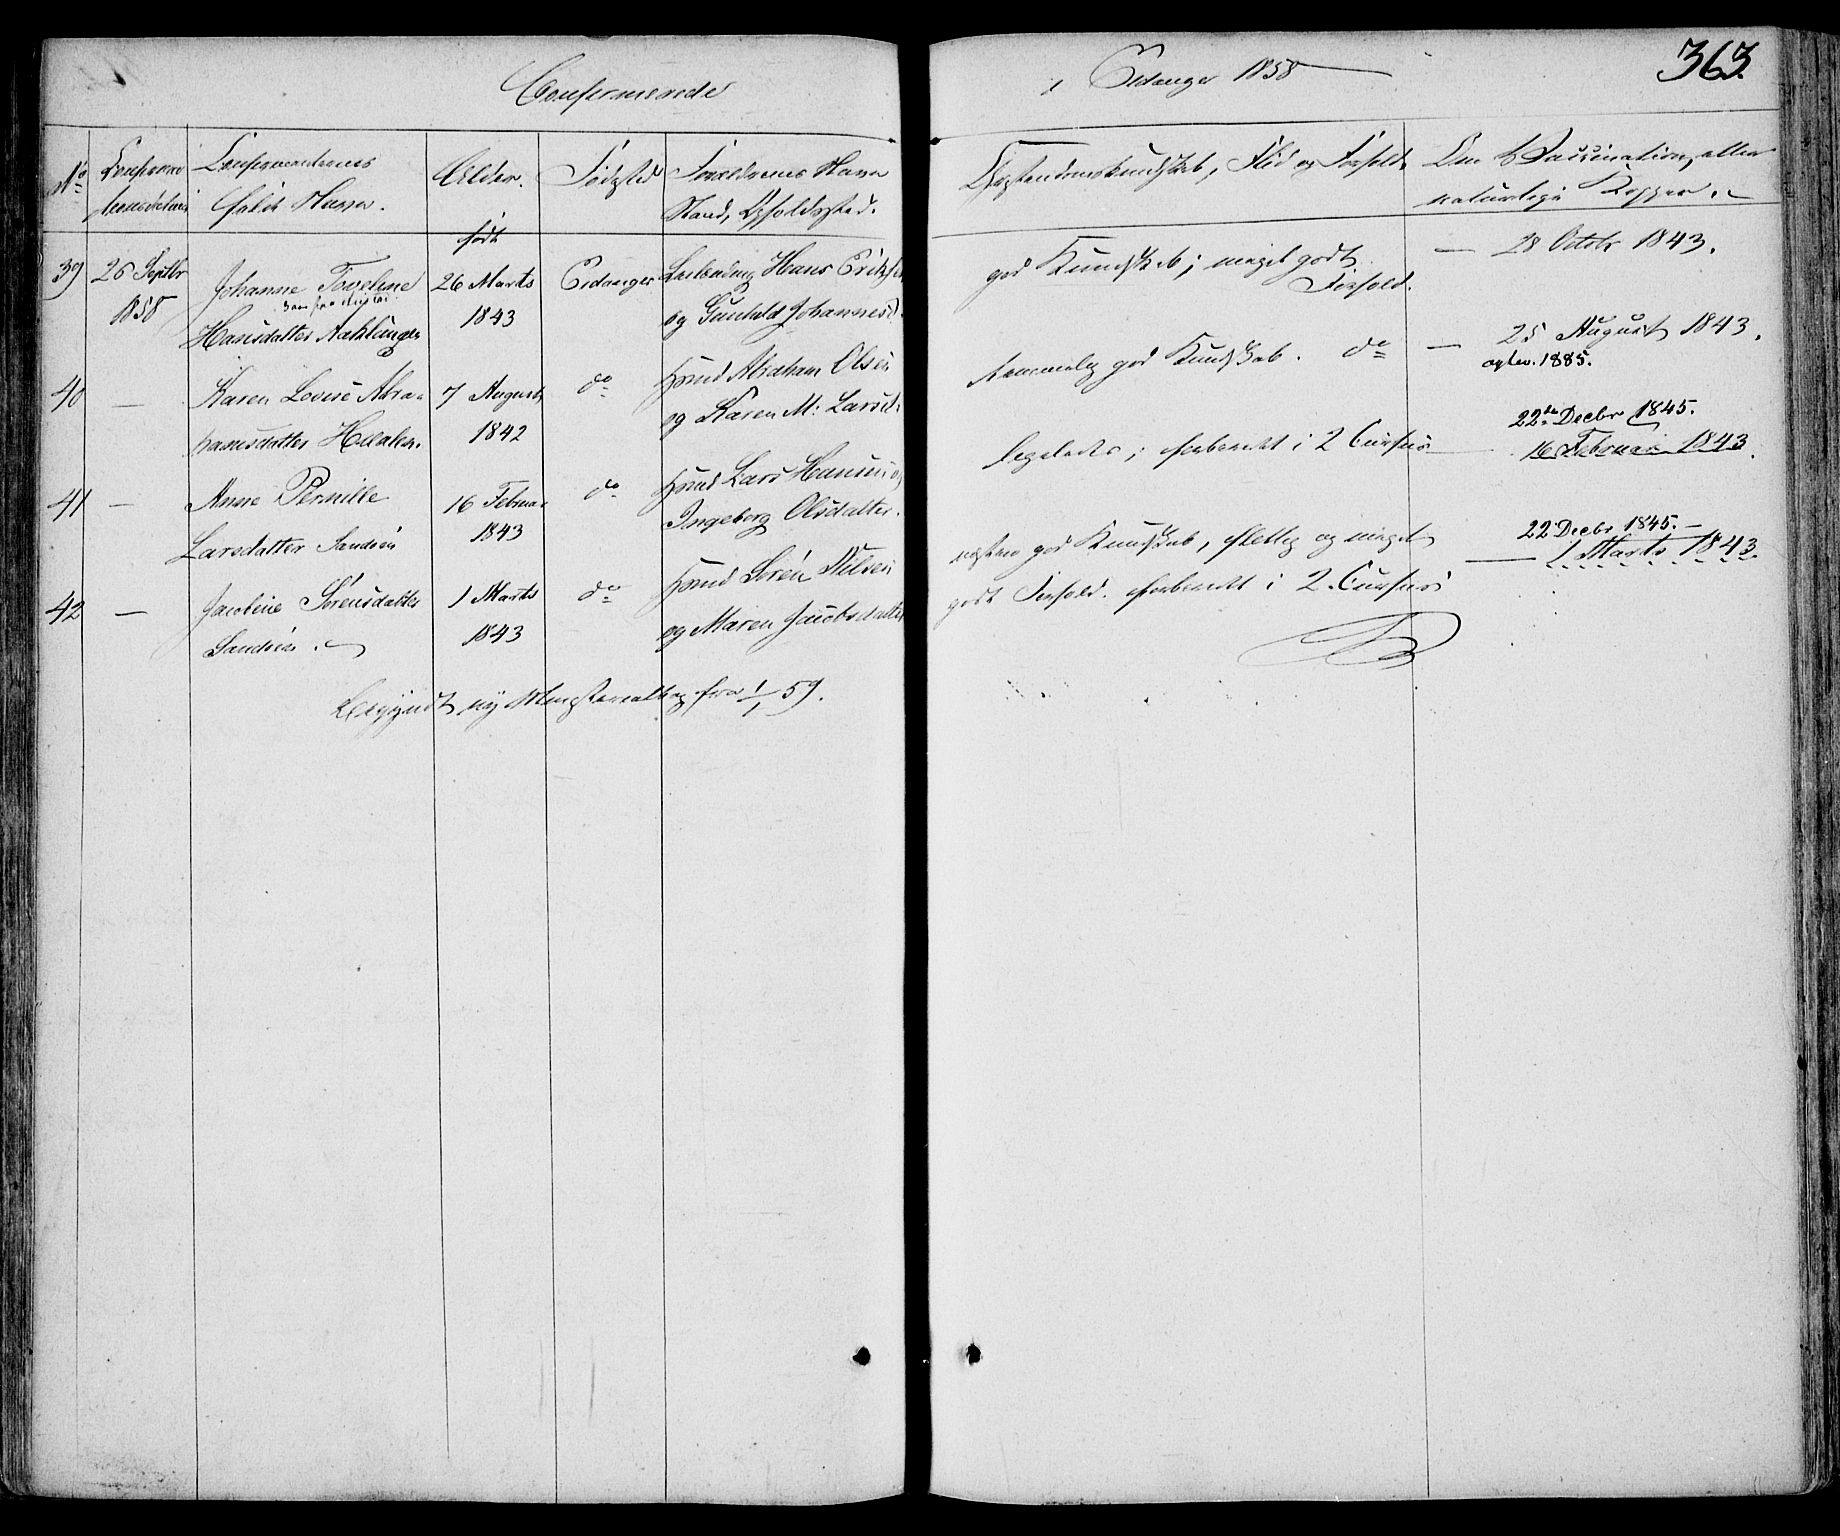 Confirmerede
i Eidanger 1858
363.
No
Confirma
tionsdatum
Confirmanternes
fulde Navn.
Alder.
født
Fødested
Forældrenes Navn
Stand, Opholdssted.
Christendomskundskab, Flid og Forhold.
Om Vaccination, eller
naturlige Kopper.
39
26 Septbr
1858
Johanne Toveline
Hansdatter Nakklungen
26 Marts
1843
Eidanger
Hans Erichsen
og Gunhild Johannesd.
god Kundskab; meget godt
Forhold.
— 28 Octobr 1843.
40
—
Karen Lovise Abra-
hamsdatter
7 August
1842
do
Abraham Olsen
og Karen M: Larsd.
temmelig god Kundskab. do
— 25 August 1843.
1885.
41
—
Anne Pernille
Larsdatter Sandøen
16 Februar
1843
do
Lars Hansen og
Ingeborg Olsdatter.
ligeledes; forberedt i 2 Cursus
22de Decbr 1845.
16 Februar 1843.
42
—
Jacobine Sørensdatter
Sandøen
1 Marts
1843
do
Søren Nilsen
og Maren Jacobsdatter
næsten god Kundskab, flittig og meget
godt Forhold. forberedt i 2 Cursus
22 Decbr 1845.—
— 1 Marts 1843.
Begyndt ny Ministerialbog fra 1/1 59.